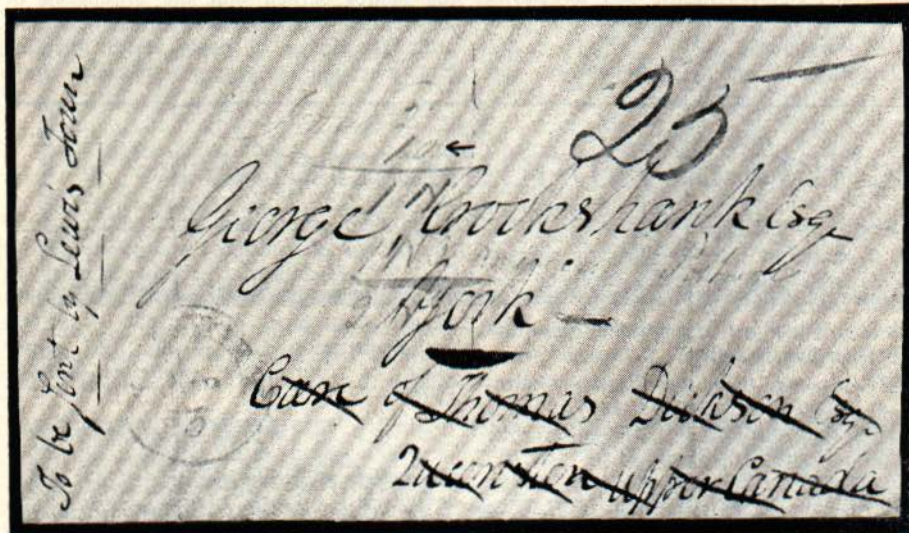 To be Sent by Lewis Town
25
George Crookshank Esqr
York
Care of Thomas Dickson Esqr
Queenston Upper Canada